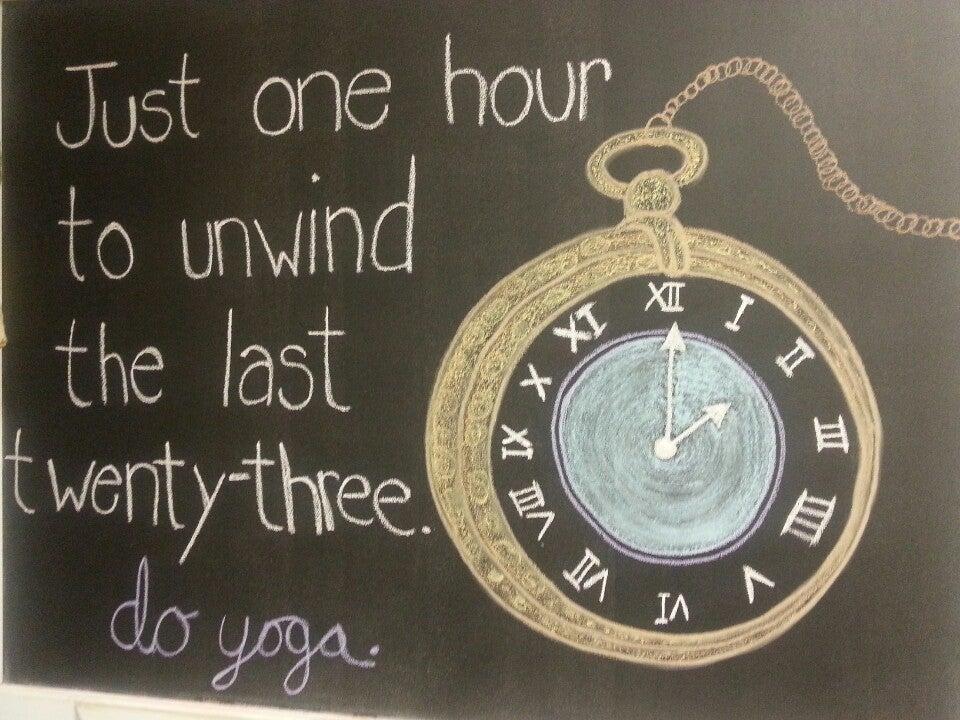 Just one hour
to unwind
the last
twenty-three.
do yoga.
XII
I
II
III
IIII
V
VI
VII
VIII
IX
X
XI